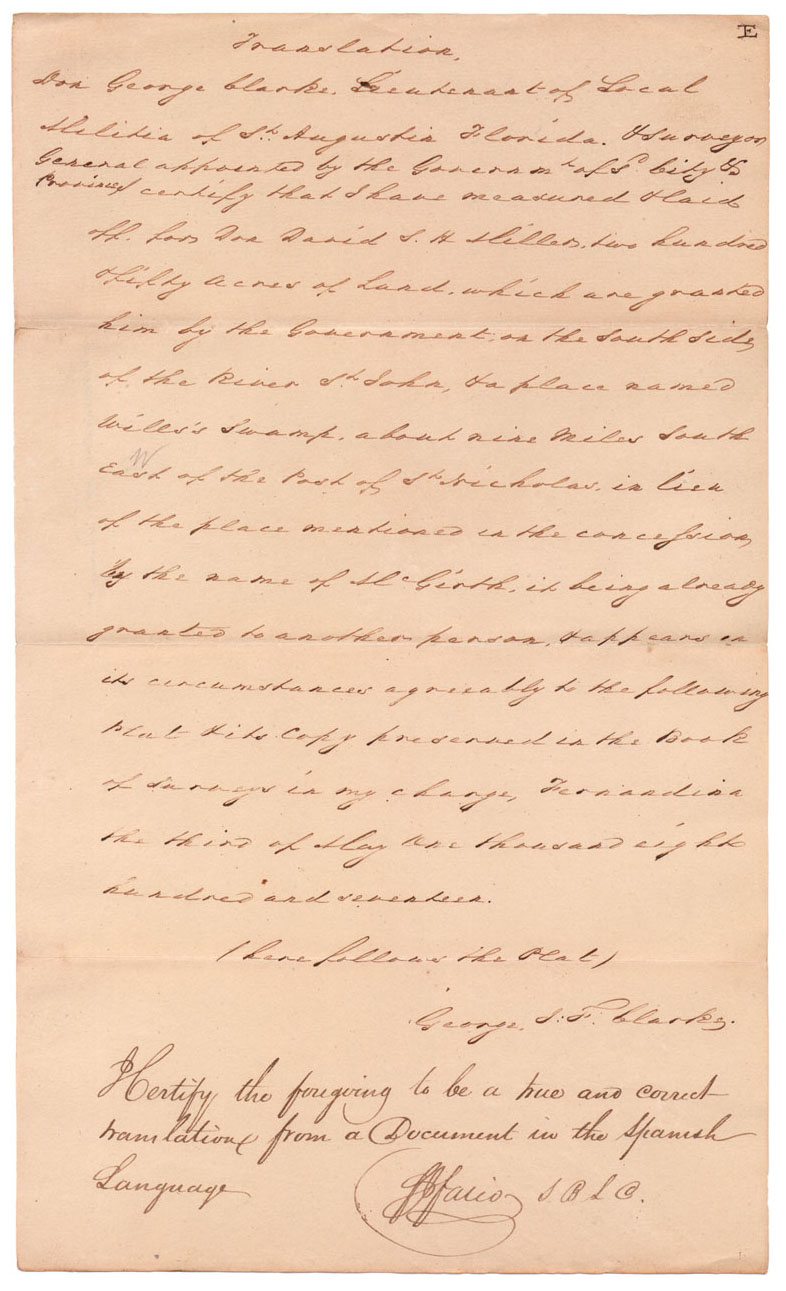 E
Translation,
Don George Clarke, Lieutenant of Local
Militia of St. Augustin Florida. & surveyor
General appointed by the Governmt. of sd. City &
Province certify that I have measured & laid
off for Don David S. H Miller, two hundred
& fifty Acres of Land, which are granted
him by the Government, on the South side,
of the River St. John, & a place named
Wills's Swamp, about nine Miles South
W
East of the Post of St. Nicholas, in lieu
of the place mentioned in the concession,
by the name of Mc. Girth, it being already
granted to another person, & appears in
its circumstances agreeably to the following
Plat & its Copy preserved in the Book
of Surveys in my charge, Fernandina
the third of May One thousand eight
hundred and seventeen.
(here follows the Plat)
George, J. F. Clarke.
I Certify the foregoing to be a true and correct
translation from a Document in the Spanish
Language
S B L C.